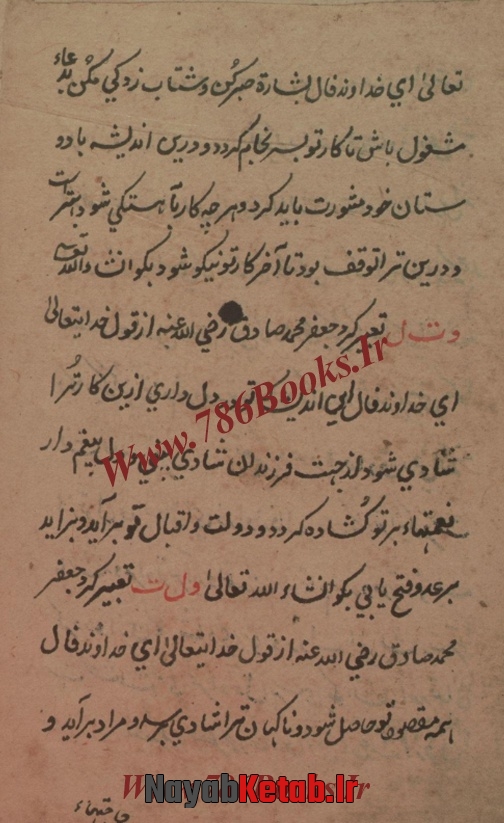 تعالیٰ اي خداوند فال بشارة صبر کن و شتاب زدکي مکن بدعاء
مشغول باش تا کار تو بسرنجام کردد و درین اندیشه با دو
ستان خود مشورت باید کرد و هر چه کار بآهستکي شود بهتر است
و درین ترا توقف بود تا آخر کار تو نیکو شود بکو انشاءالله تعالی
و ت ل تعبیر کرد جعفر محمد صادق رضي الله عنه از قول خدایتعالیٰ
اي خداوند فال این اندیشه که تو در دل داري ازین کار ترا
شادي شود از جهت فرزندان شادي بیني و دل بیغم دار
نعمتهاء بر تو کشاده کردد و دولت و اقبال تو برآید و بزاید
بر عدو فتح یابي بکو انشاء الله تعالیٰ و ل ت تعبیر کرد جعفر
محمد صادق رضي الله عنه از قول خدایتعالیٰ اي خداوند فال
همه مقصود تو حاصل شود و ناکهان ترا شادي برسد و مراد برآید و
Www.786Books.Ir
Www.786Books.Ir
NayabKetab.Ir